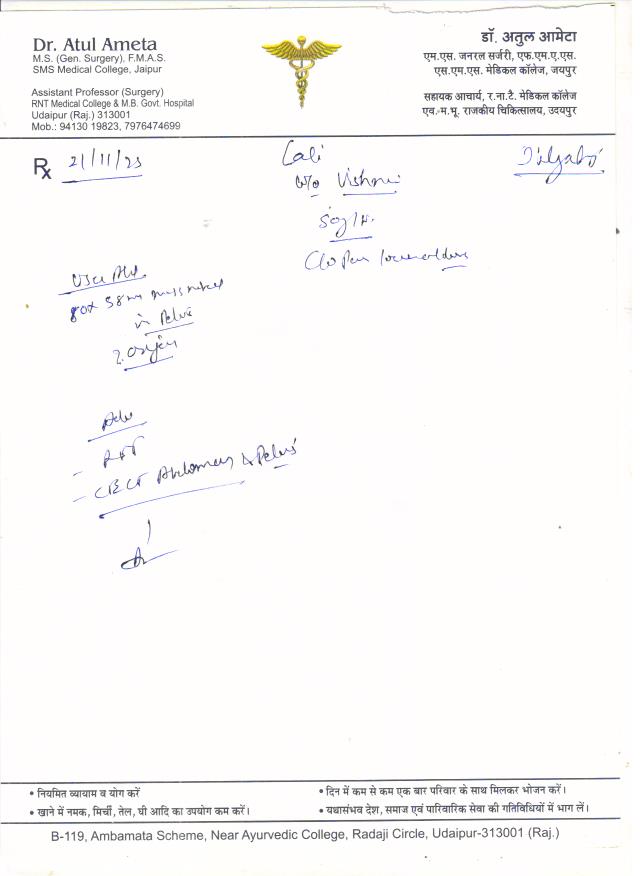 Dr. Atul Ameta
M.S. (Gen. Surgery), F.M.A.S.
SMS Medical College, Jaipur
Assistant Professor (Surgery)
RNT Medical College & M.B. Govt. Hospital
Udaipur (Raj.) 313001
Mob.: 94130 19823, 7976474699
डॉ. अतुल आमेटा
एम.एस. जनरल सर्जरी, एफ.एम.ए.एस.
एस.एम.एस. मेडिकल कॉलेज, जयपुर
सहायक आचार्य, र.ना.टै. मेडिकल कॉलेज
एवं म.भू. राजकीय चिकित्सालय, उदयपुर
Rx 21/11/23
Lali
W/o Vishnu
50y/F.
C/o Pain
in Pelvis
Adv
- RFT
- CECT Abdomen & Pelvis
• नियमित व्यायाम व योग करें
• खाने में नमक, मिर्ची, तेल, घी आदि का उपयोग कम करें।
• दिन में कम से कम एक बार परिवार के साथ मिलकर भोजन करें।
• यथासंभव देश, समाज एवं पारिवारिक सेवा की गतिविधियों में भाग लें।
B-119, Ambamata Scheme, Near Ayurvedic College, Radaji Circle, Udaipur-313001 (Raj.)